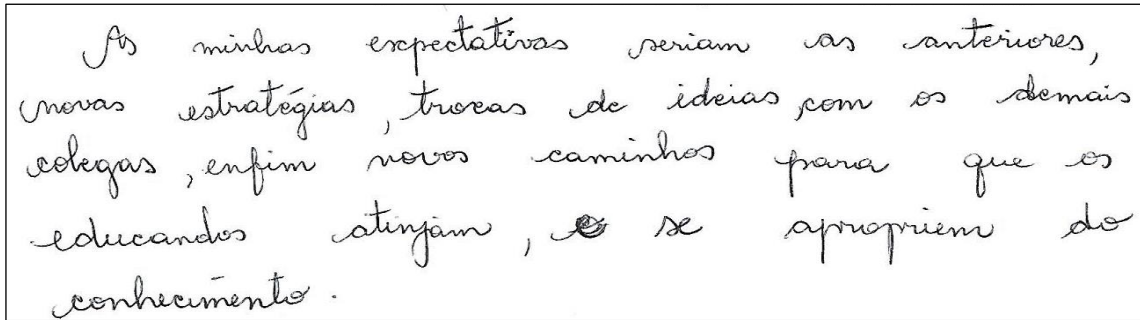 As minhas expectativas seriam as anteriores,
novas estratégias, trocas de ideias, com os demais
colegas, enfim novos caminhos para que os
educandos atinjam, e se apropriem do
conhecimento.